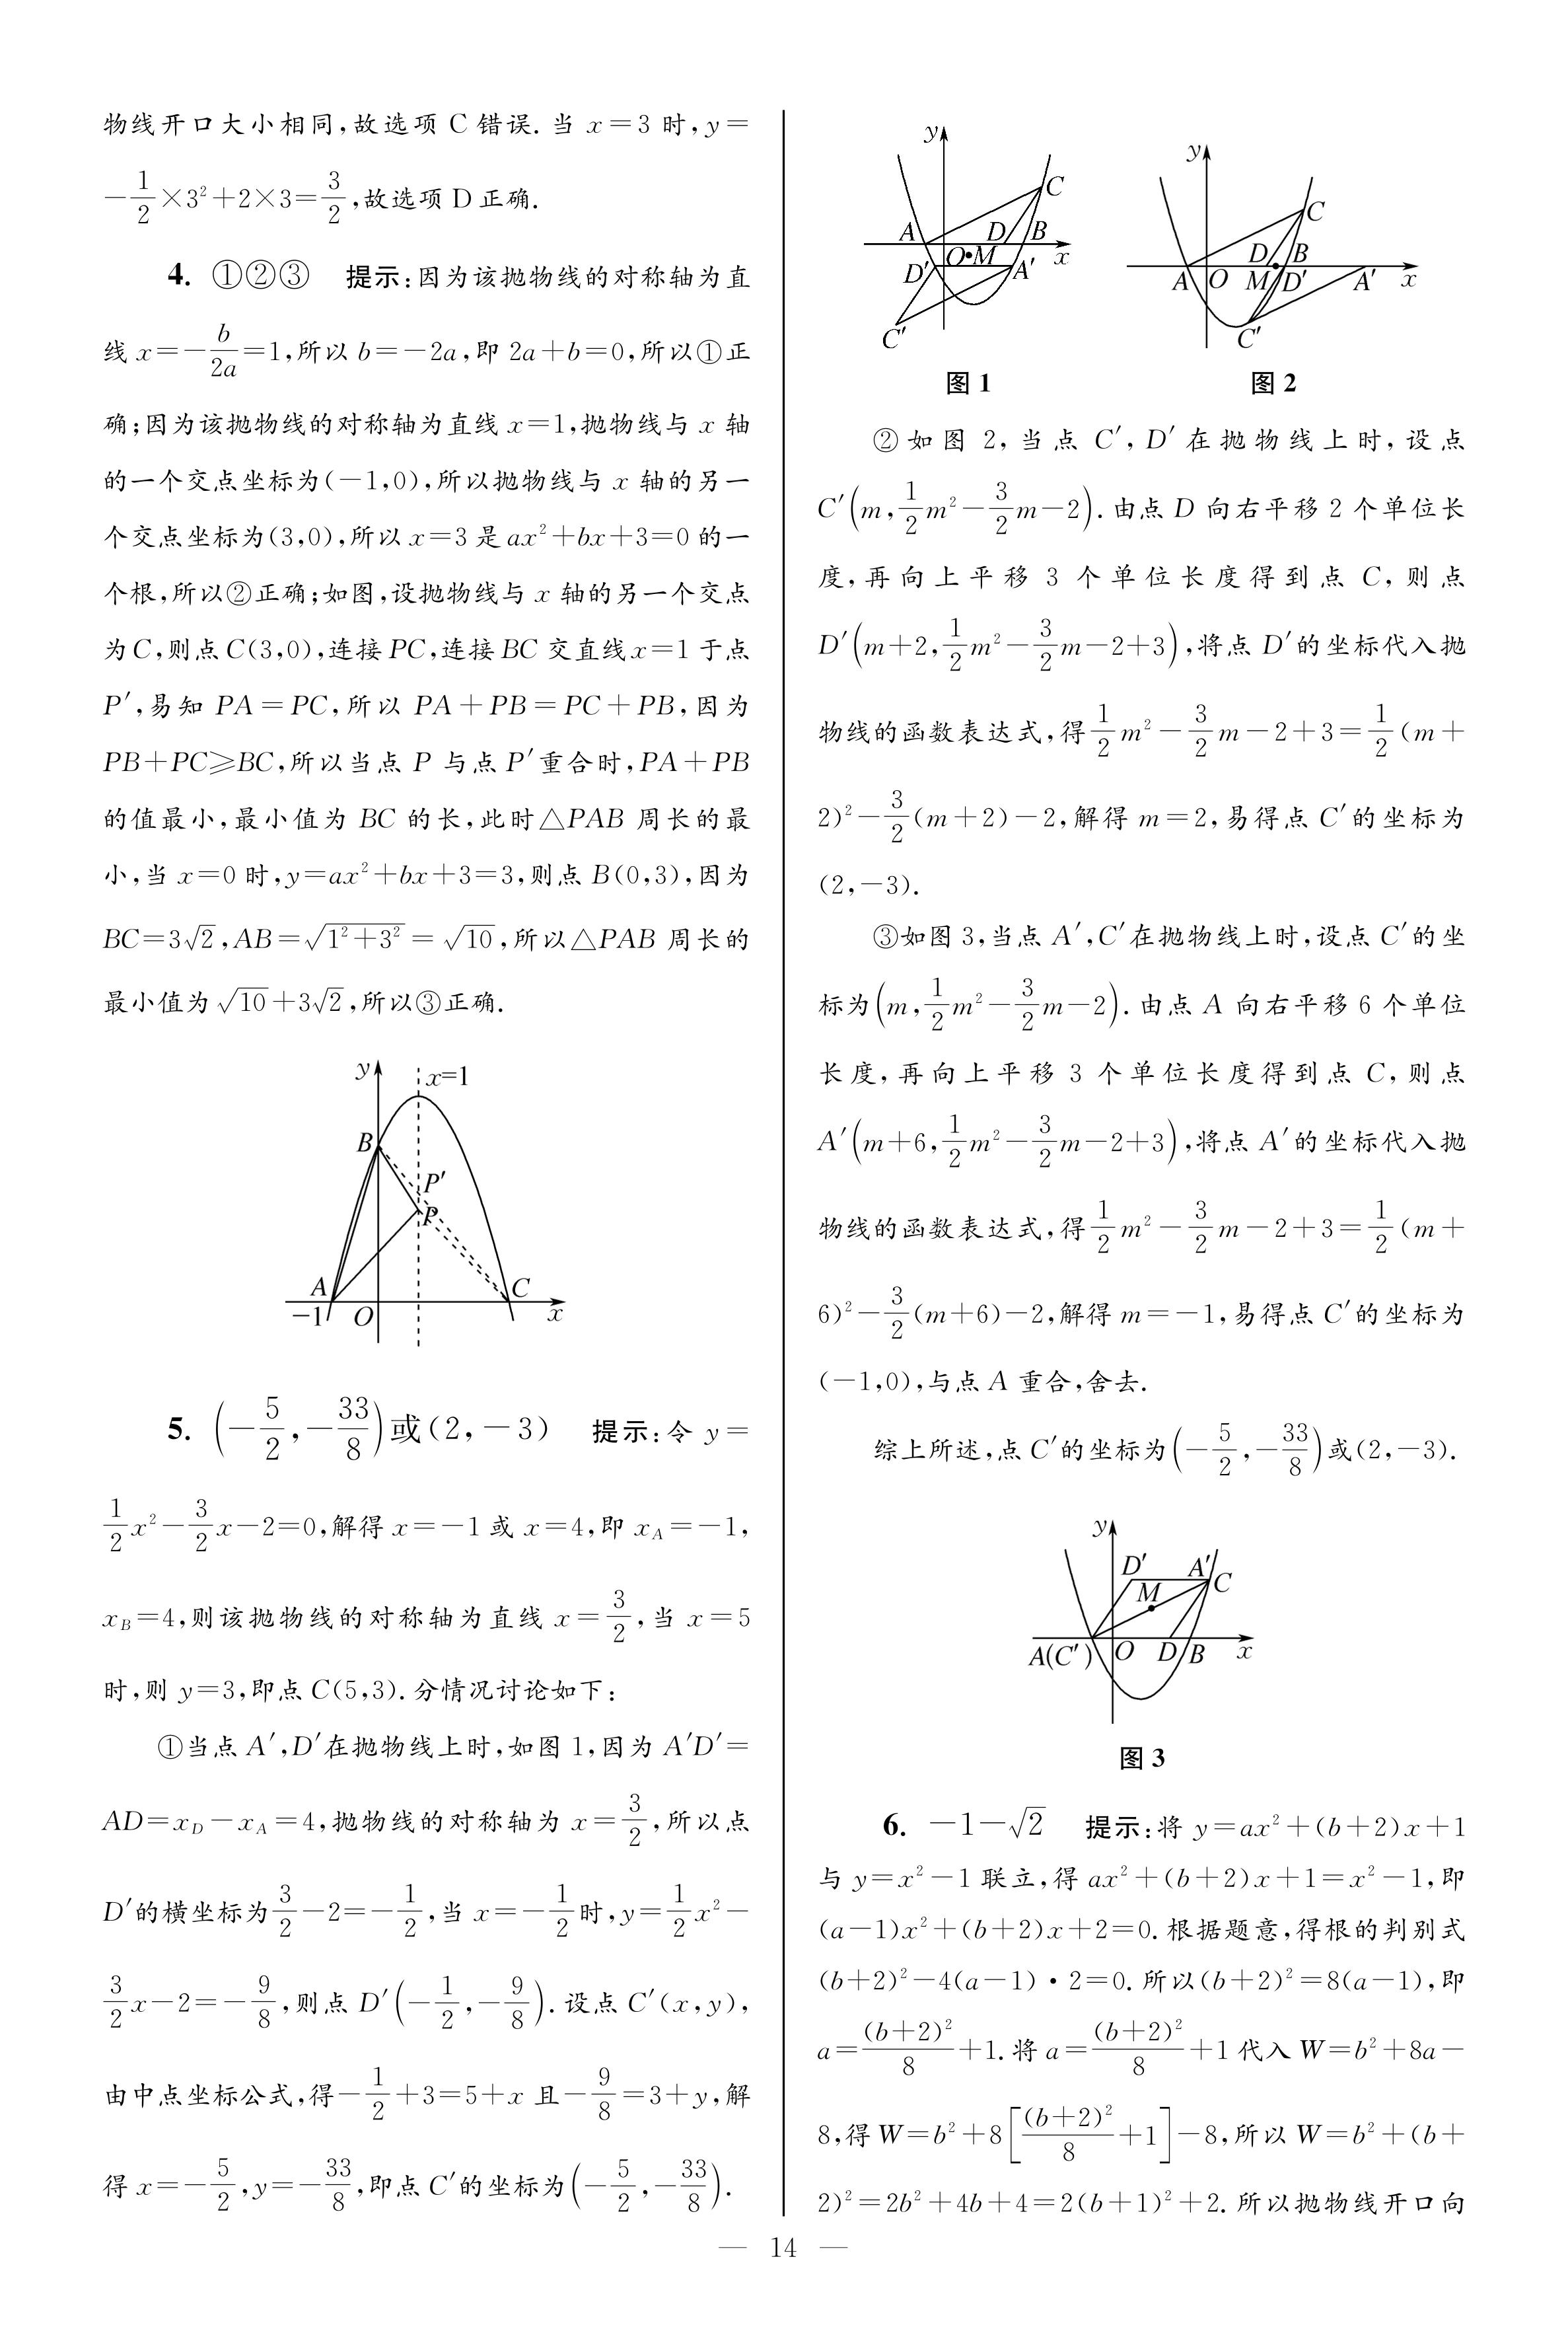 物线开口大小相同,故选项 C 错误. 当 x=3 时,y=
-1/2×3²+2×3=3/2,故选项 D 正确.
4. ①②③ 提示:因为该抛物线的对称轴为直
线 x=-b/2a=1,所以 b=-2a,即 2a+b=0,所以①正
确;因为该抛物线的对称轴为直线 x=1,抛物线与 x 轴
的一个交点坐标为(-1,0),所以抛物线与 x 轴的另一
个交点坐标为(3,0),所以 x=3 是 ax²+bx+3=0 的一
个根,所以②正确;如图,设抛物线与 x 轴的另一个交点
为C,则点C(3,0),连接PC,连接BC 交直线x=1 于点
P′,易知 PA=PC,所以 PA+PB=PC+PB,因为
PB+PC⩾BC,所以当点 P 与点 P′重合时,PA+PB
的值最小,最小值为 BC 的长,此时△PAB 周长的最
小,当 x=0 时,y=ax²+bx+3=3,则点 B(0,3),因为
BC=3√2,AB=√(1²+3²)=√10,所以△PAB 周长的
最小值为√10+3√2,所以③正确.
y
x=1
B
P′
P
A
C
-1
O
x
5. (-5/2,-33/8)或(2,-3) 提示:令 y=
1/2x²-3/2x-2=0,解得 x=-1 或 x=4,即 x_A=-1,
x_B=4,则该抛物线的对称轴为直线 x=3/2,当 x=5
时,则 y=3,即点 C(5,3). 分情况讨论如下:
①当点 A′,D′在抛物线上时,如图 1,因为 A′D′=
AD=x_D-x_A=4,抛物线的对称轴为 x=3/2,所以点
D′的横坐标为3/2-2=-1/2,当 x=-1/2时,y=1/2x²-
3/2x-2=-9/8,则点 D′(-1/2,-9/8). 设点 C′(x,y),
由中点坐标公式,得-1/2+3=5+x 且-9/8=3+y,解
得 x=-5/2,y=-33/8,即点 C′的坐标为(-5/2,-33/8).
y
C
A
D
B
O
M
x
D′
A′
C′
图 1
y
C
D
B
A
O
M
D′
A′
x
C′
图 2
②如图 2,当点 C′,D′在抛物线上时,设点
C′(m,1/2m²-3/2m-2). 由点 D 向右平移 2 个单位长
度,再向上平移 3 个单位长度得到点 C,则点
D′(m+2,1/2m²-3/2m-2+3),将点 D′的坐标代入抛
物线的函数表达式,得1/2m²-3/2m-2+3=1/2(m+
2)²-3/2(m+2)-2,解得 m=2,易得点 C′的坐标为
(2,-3).
③如图 3,当点 A′,C′在抛物线上时,设点 C′的坐
标为(m,1/2m²-3/2m-2). 由点 A 向右平移 6 个单位
长度,再向上平移 3 个单位长度得到点 C,则点
A′(m+6,1/2m²-3/2m-2+3),将点 A′的坐标代入抛
物线的函数表达式,得1/2m²-3/2m-2+3=1/2(m+
6)²-3/2(m+6)-2,解得 m=-1,易得点 C′的坐标为
(-1,0),与点 A 重合,舍去.
综上所述,点 C′的坐标为(-5/2,-33/8)或(2,-3).
y
D′
A′
C
M
A(C′)
O
D
B
x
图 3
6. -1-√2 提示:将 y=ax²+(b+2)x+1
与 y=x²-1 联立,得 ax²+(b+2)x+1=x²-1,即
(a-1)x²+(b+2)x+2=0. 根据题意,得根的判别式
(b+2)²-4(a-1)·2=0. 所以(b+2)²=8(a-1),即
a=(b+2)²/8+1. 将 a=(b+2)²/8+1 代入 W=b²+8a-
8,得 W=b²+8[(b+2)²/8+1]-8,所以 W=b²+(b+
2)²=2b²+4b+4=2(b+1)²+2. 所以抛物线开口向
— 14 —